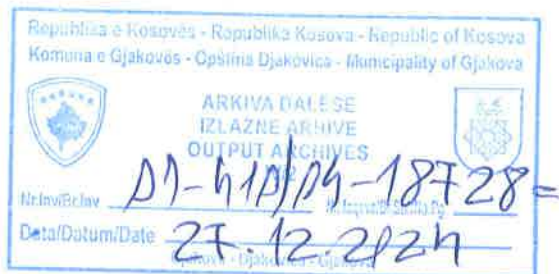 Republika e Kosovës - Republika Kosova - Republic of Kosova
Komuna e Gjakovës - Opština Djakovica - Municipality of Gjakova
ARKIVA DALËSE
IZLAZNE ARHIVE
OUTPUT ARCHIVES
Nr.Inv/Br.Inv -18728=
Data/Datum/Date 27.12.2024